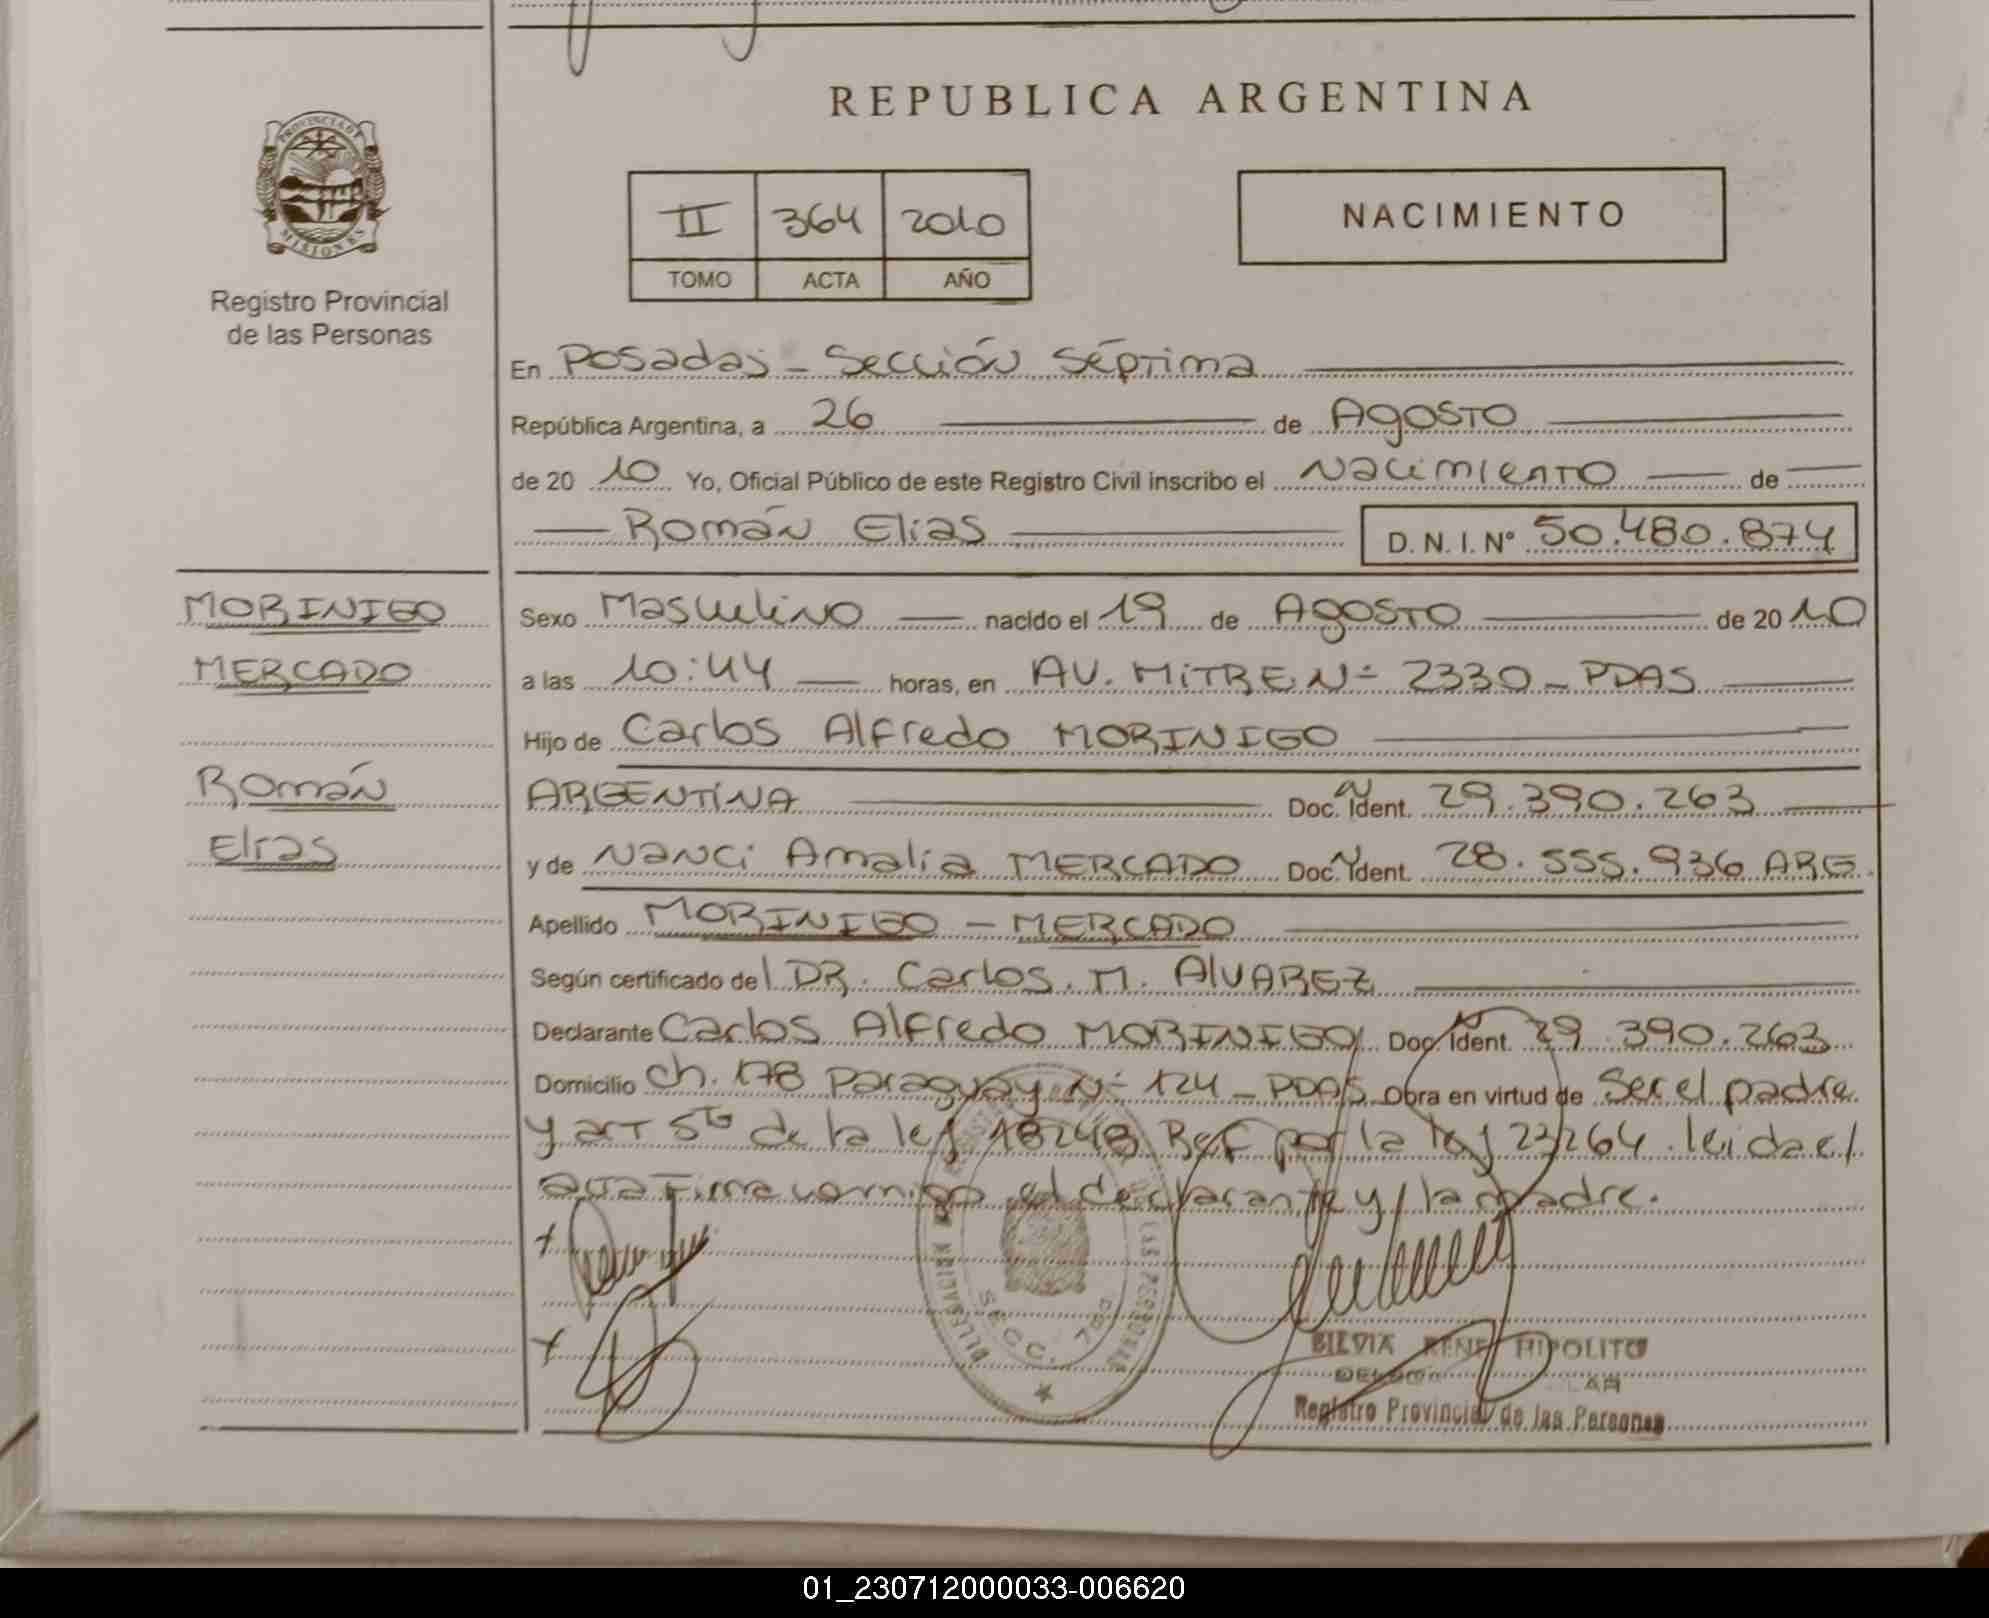 REPUBLICA ARGENTINA
PROVINCIA DE
MISIONES
Registro Provincial
de las Personas
II 364 2010
TOMO ACTA AÑO
NACIMIENTO
En Posadas - Sección Séptima
República Argentina, a 26 de Agosto
de 20 10 Yo, Oficial Público de este Registro Civil inscribo el Nacimiento de
Román Elias D. N. I. Nº 50.480.874
MORINIGO
MERCADO
Román
Elias
Sexo Masculino nacido el 19 de Agosto de 20 10
a las 10:44 horas, en AV. MITRE Nº 2330 - PDAS
Hijo de Carlos Alfredo MORINIGO
ARGENTINA Doc. Ident. 29.390.263
y de Nanci Amalia MERCADO Doc. Ident. 28.555.936 ARG.
Apellido MORINIGO - MERCADO
Según certificado del DR. Carlos. M. AlVAREZ
Declarante Carlos Alfredo MORINIGO Doc. Ident. 29.390.263
Domicilio Ch. 178 Paraguay Nº 124 - PDAS Obra en virtud de Ser el padre
y art 5to de la ley 18248 Ref por la ley 23264. leida el
acta Firma conmigo el declarante y la madre.
SECC. 7
SILVIA RENE HIPOLITO
Registro Provincial de las Personas
01_230712000033-006620